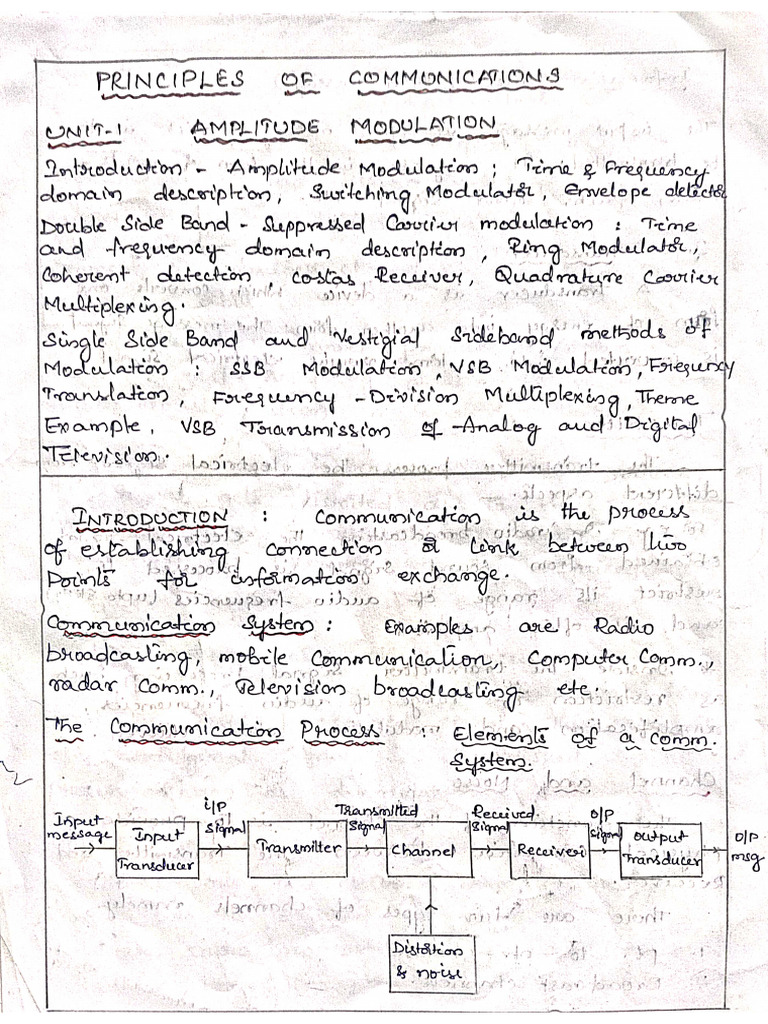 PRINCIPLES OF COMMUNICATIONS
UNIT-1 AMPLITUDE MODULATION
Introduction - Amplitude Modulation ; Time & Frequency
domain description, Switching Modulator, Envelope detector
Double Side Band - Suppressed Carrier modulation : Time
and frequency domain description, Ring Modulator,
Coherent detection, costas Receiver, Quadrature Carrier
Multiplexing.
Single Side Band and Vestigial Sideband methods of
Modulation : SSB Modulation, VSB Modulation, Frequency
Translation, Frequency - Division Multiplexing, Theme
Example, VSB Transmission of Analog and Digital
Television.
INTRODUCTION : Communication is the process
of establishing connection or link between two
points for information exchange.
Communication System : Examples are Radio
broadcasting, mobile Communication, Computer Comm.,
radar Comm., Television broadcasting etc.
The Communication Process : Elements of a comm.
System.
Input message
Input Transducer
i/P Signal
Transmitter
Transmitted Signal
Channel
Received Signal
Receiver
O/P Signal
Output Transducer
O/P msg
Distortion
& noise